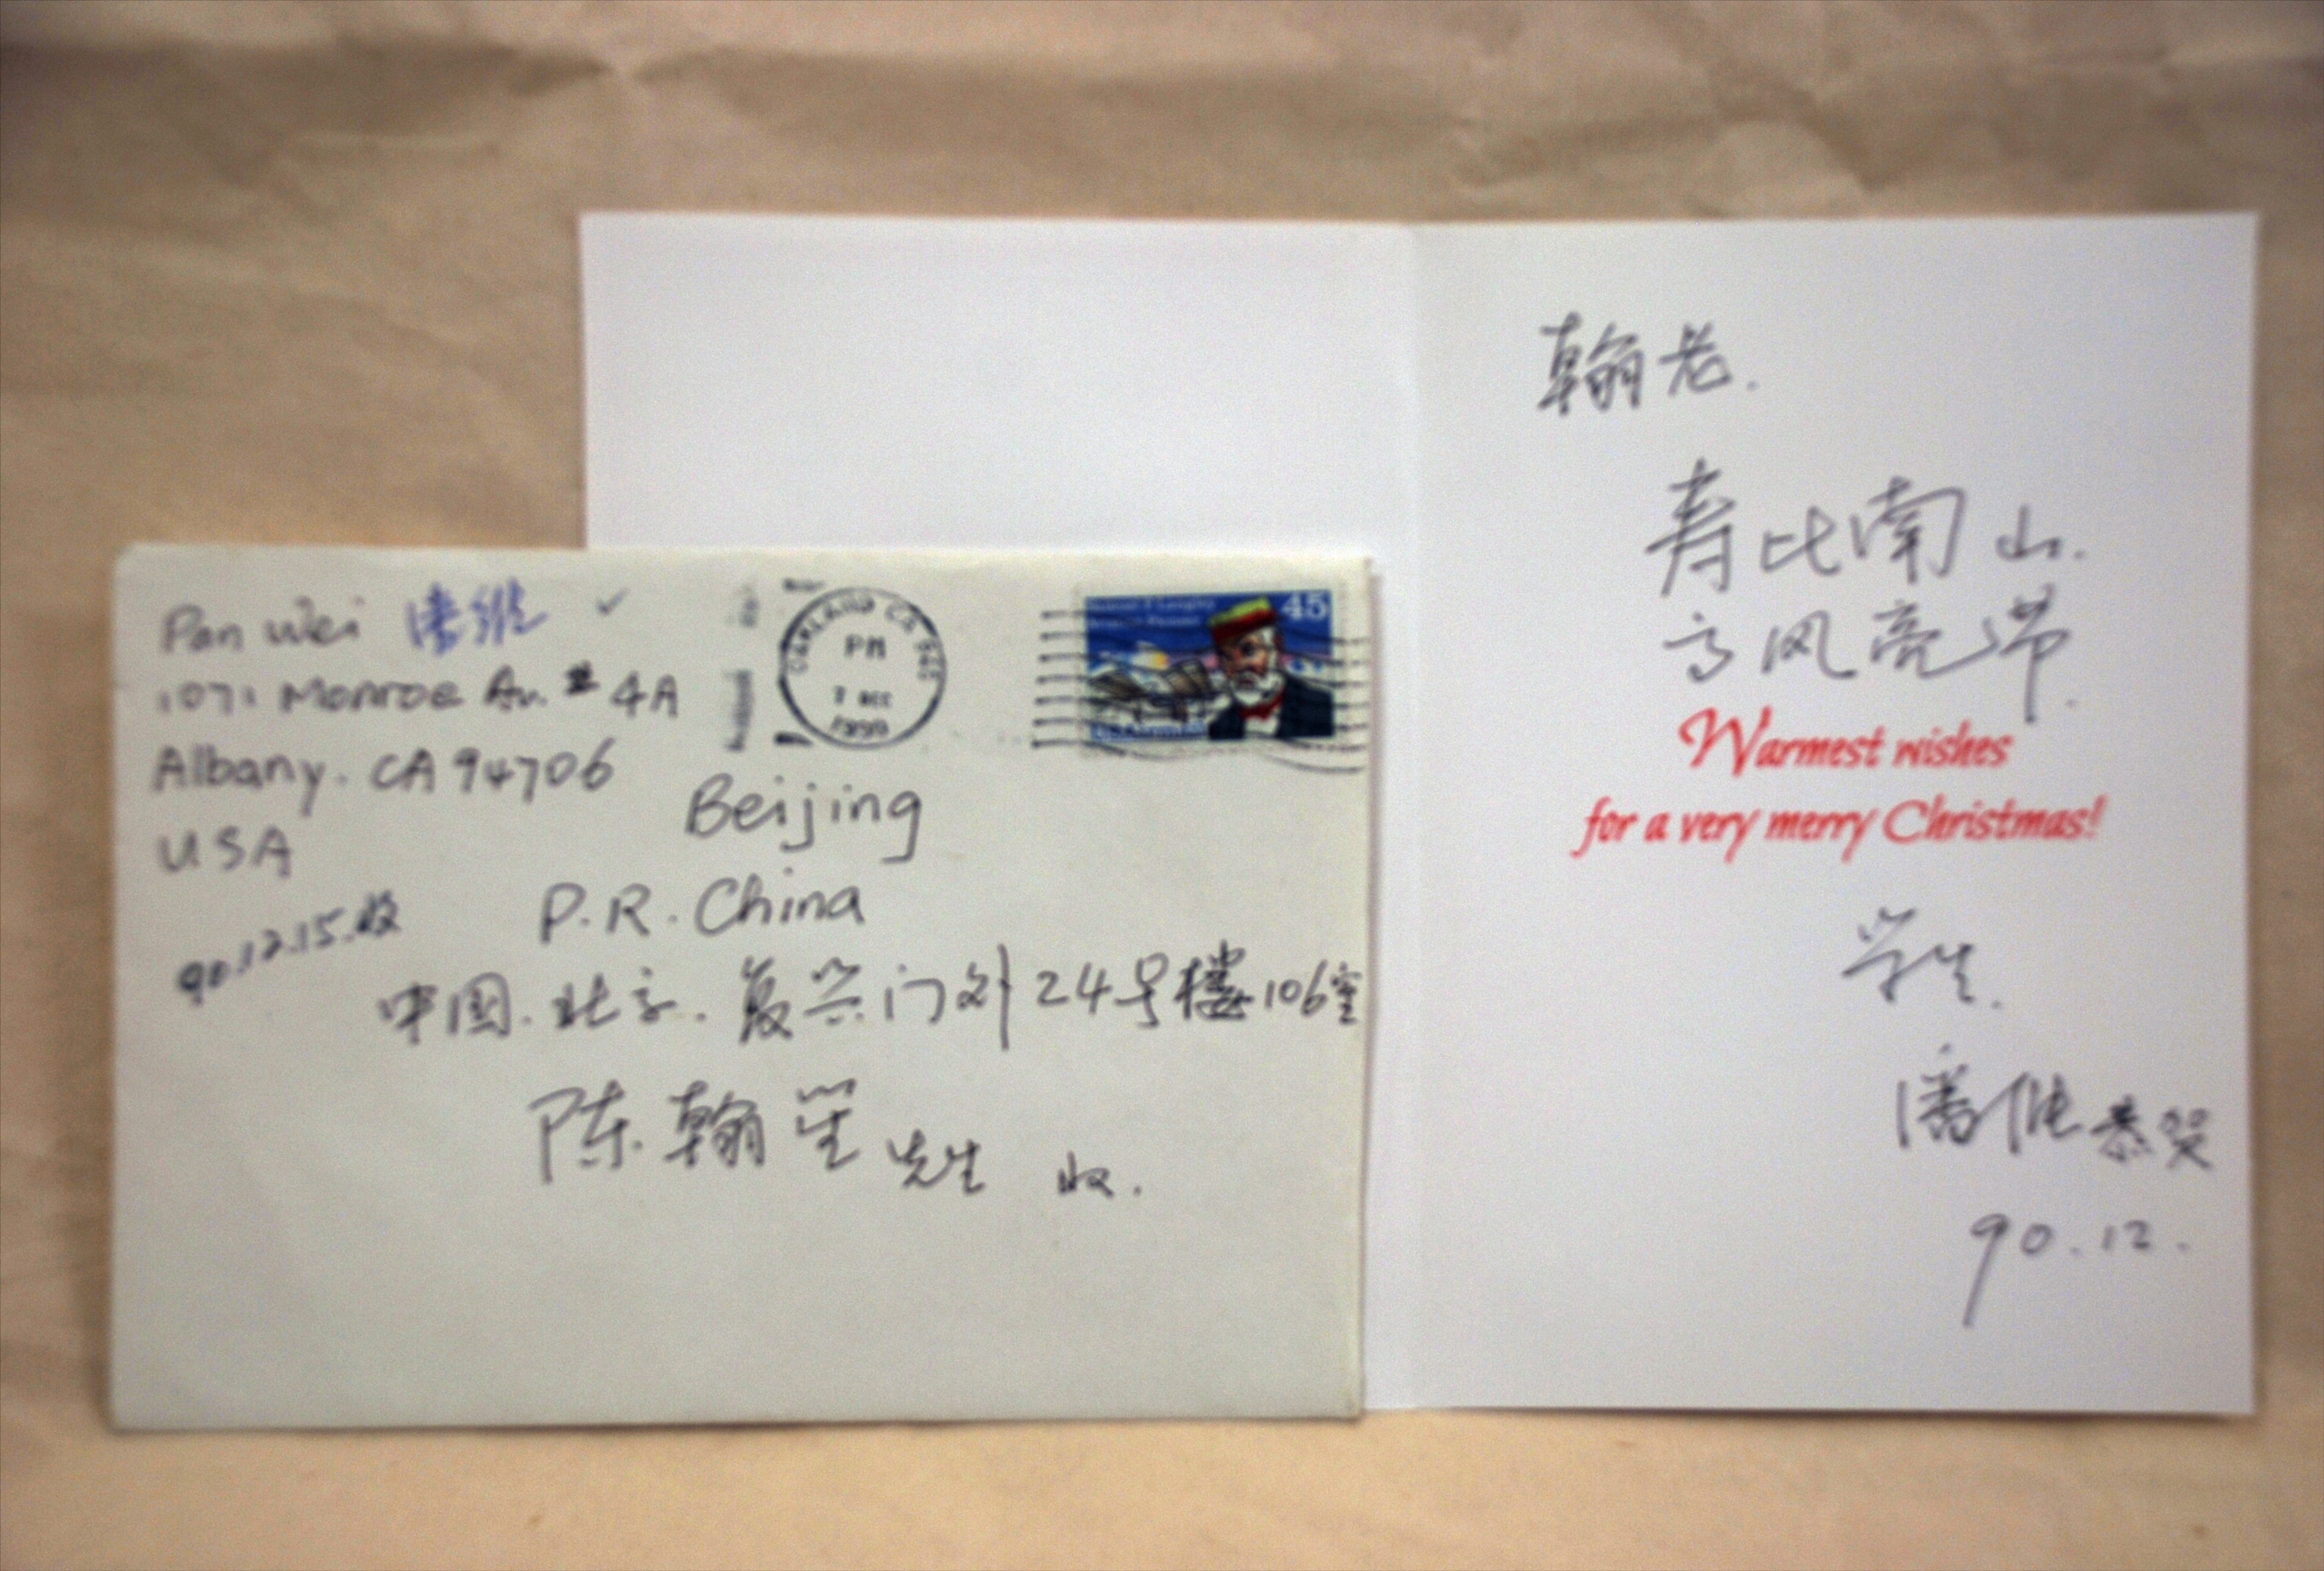 Pan Wei 潘维
1071 Monroe Av. # 4A
Albany. CA 94706
USA
90.12.15.收
OAKLAND CA
PM
7 DEC
1990
45
Beijing
P.R. China
中国.北京.复兴门外24号楼106室
陈翰笙先生 收.
翰老.
寿比南山.
高风亮节.
Warmest wishes
for a very merry Christmas!
学生.
潘维恭贺
90.12.